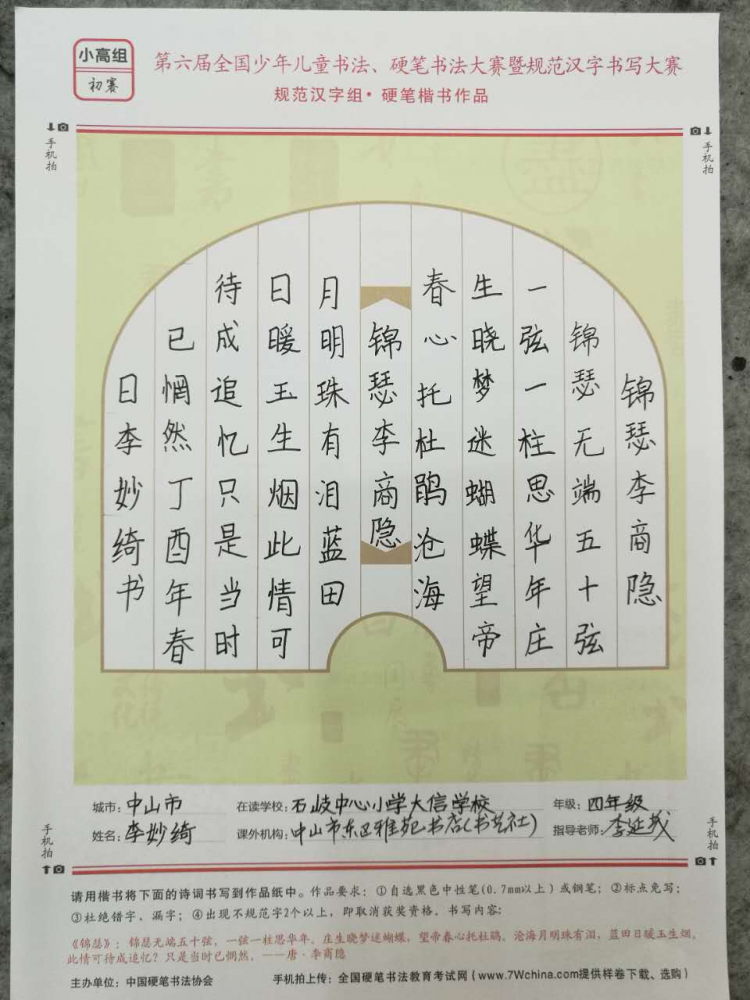 小高组
初赛
第六届全国少年儿童书法、硬笔书法大赛暨规范汉字书写大赛
规范汉字组·硬笔楷书作品
手机拍
手机拍
锦瑟李商隐
锦瑟无端五十弦
一弦一柱思华年庄
生晓梦迷蝴蝶望帝
春心托杜鹃沧海
锦瑟李商隐
月明珠有泪蓝田
日暖玉生烟此情可
待成追忆只是当时
已惘然丁酉年春
日李妙绮书
城市：中山市 在读学校：石岐中心小学大信学校 年级：四年级
姓名：李妙绮 课外机构：中山市东区雅苑书店(书艺社) 指导老师：李延我
手机拍
手机拍
请用楷书将下面的诗词书写到作品纸中。作品要求：①自选黑色中性笔(0.7mm以上)或钢笔；②标点免写；
③杜绝错字、漏字；④出现不规范字2个以上，即取消获奖资格。书写内容：
《锦瑟》：锦瑟无端五十弦，一弦一柱思华年。庄生晓梦迷蝴蝶，望帝春心托杜鹃。沧海月明珠有泪，蓝田日暖玉生烟。
此情可待成追忆？只是当时已惘然。——唐·李商隐
主办单位：中国硬笔书法协会 手机拍上传：全国硬笔书法教育考试网(www.7Wchina.com提供样卷下载、选购)